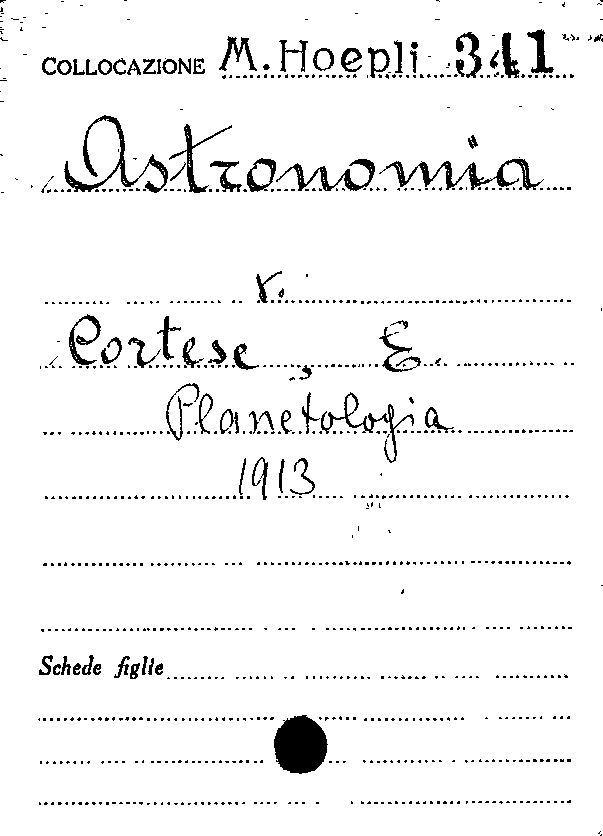 COLLOCAZIONE M. Hoepli 341
Astronomia
v.
Cortese, E.
Planetologia
1913
Schede figlie